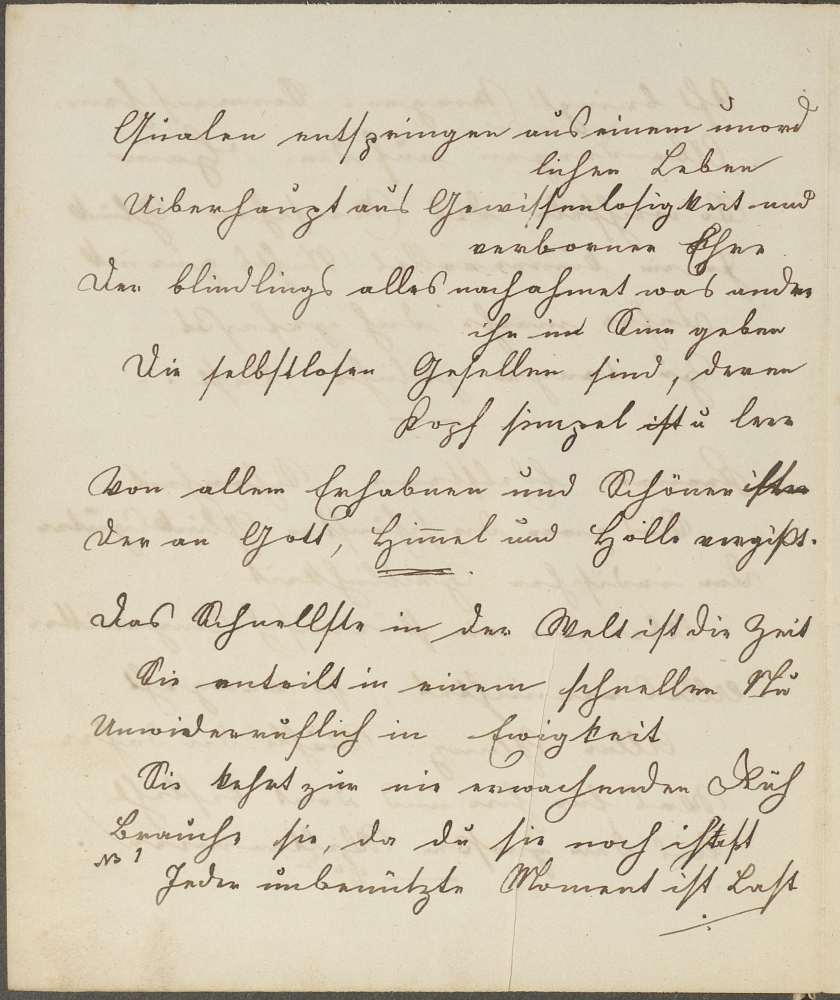 Qualen entspringen aus einem unord
lichen Leben
Uiberhaupt aus Gewissenlosigkeit und
verborner Ehre
Der blindlings alles nachahmet was andre
ihn im Sinn geben
Die selbstlosen Gesellen sind, deren
Kopf simpel ist u leer
Von allem Erhabnen und Schönen
Der an Gott, Himmel und Hölle vergißt.
Das Schnellste in der Welt ist die Zeit
Sie enteilt in einem schnellen Nu
Unwiderruflich in Ewigkeit
Sie kehrt zur nie erwachenden Ruh
Brauche sie, da du sie noch hast
NB 1
Jeder unbenützte Moment ist Last